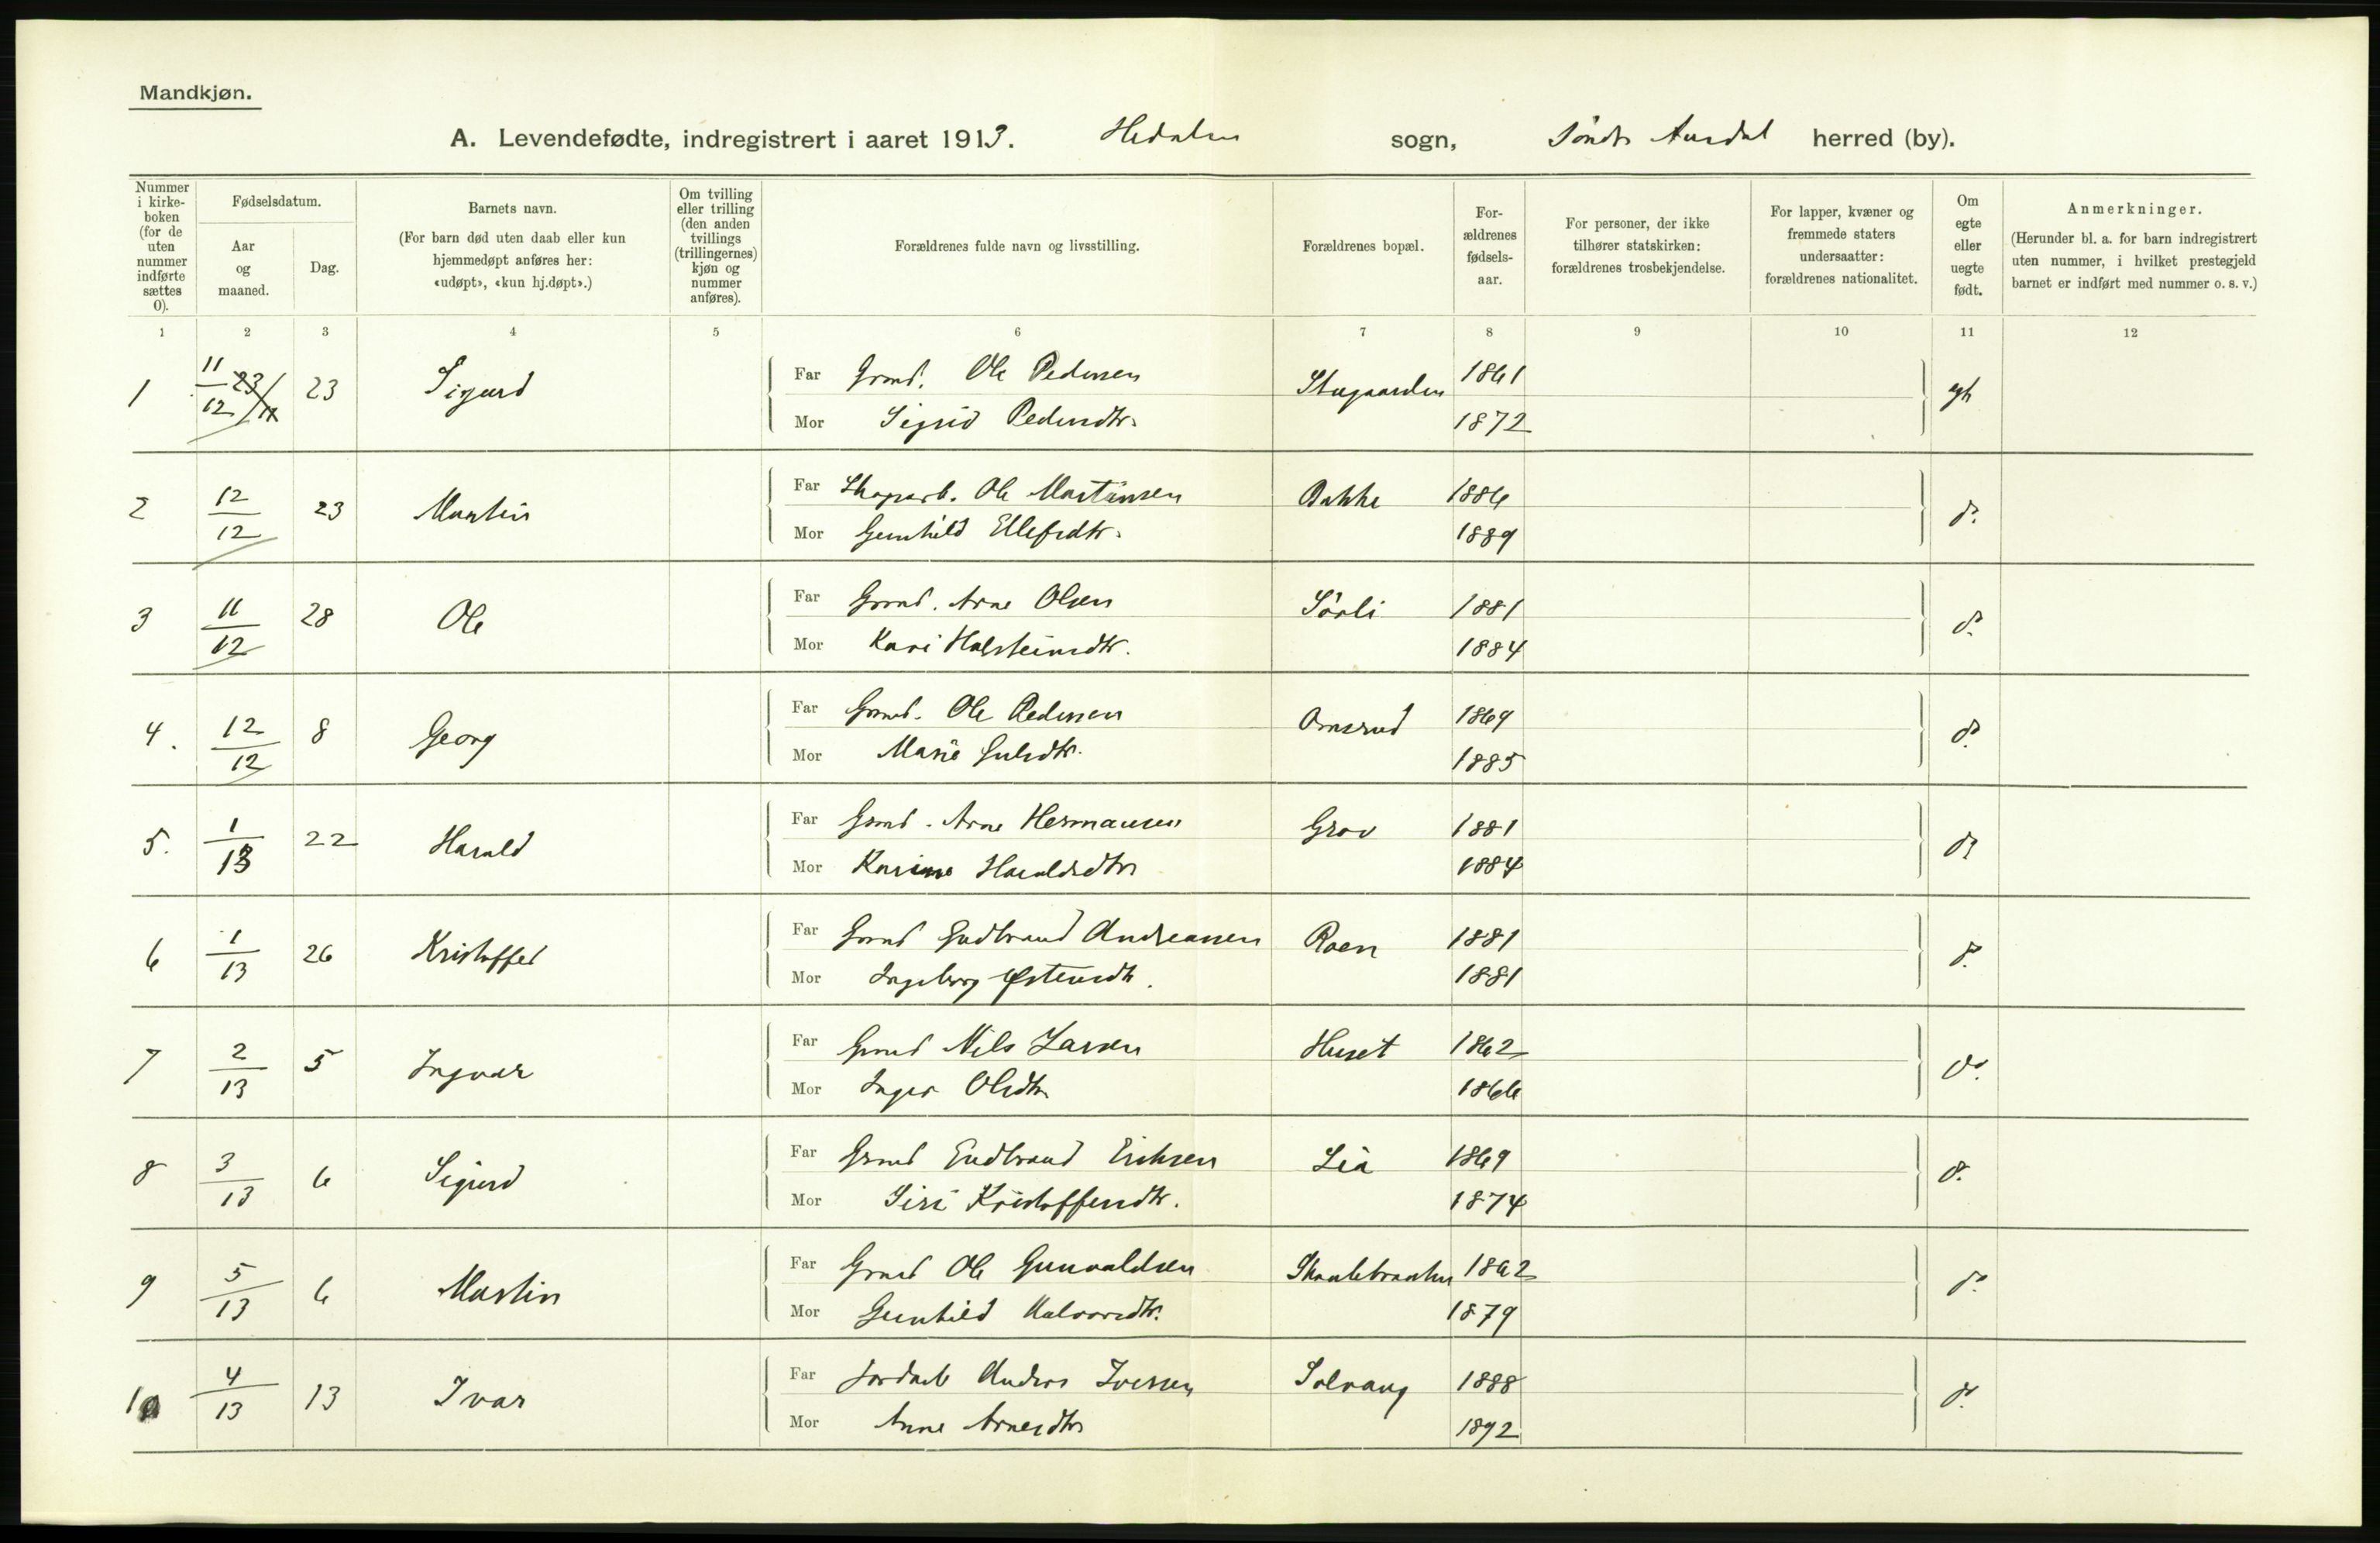 Mandkjøn.
A. Levendefødte, indregistrert i aaret 1913. Hedalen sogn, Söndre Aurdal herred (by).
Nummer i kirke-boken (for de uten nummer indførte sættes 0).
Fødselsdatum.
Aar og maaned.
Dag.
Barnets navn.
(For barn død uten daab eller kun hjemmedøpt anføres her: «udøpt», «kun hj.døpt».)
Om tvilling eller trilling (den anden tvillings (trillingernes) kjøn og nummer anføres).
Forældrenes fulde navn og livsstilling.
Forældrenes bopæl.
For-ældrenes fødsels-aar.
For personer, der ikke tilhører statskirken: forældrenes trosbekjendelse.
For lapper, kvæner og fremmede staters undersaatter: forældrenes nationalitet.
Om egte eller uegte født.
Anmerkninger.
(Herunder bl. a. for barn indregistrert uten nummer, i hvilket prestegjeld barnet er indført med nummer o. s. v.)
1 2 3 4 5 6 7 8 9 10 11 12
1 11/12 23 Sigurd Far Grmd. Ole Pedersen 1861 egte
Mor Sigrid Pedersdtr. 1872
2 12/12 23 Martin Far Skogarb. Ole Martinsen Bakke 1886 do.
Mor Gunhild Ellefsdtr. 1889
3 11/12 28 Ole Far Grmd. Arne Olsen Sörli 1881 do.
Mor Kari Halsteinsdtr. 1884
4. 12/12 8 Georg Far Grmd. Ole Pedersen 1869 do.
Mor Marie Gulsdtr. 1885
5. 1/13 22 Harald Far Grmd. Arne Hermansen Grov 1881 do
Mor Karine Haraldsdtr 1884
6 1/13 26 Kristoffer Far Grmd Gudbrand Andreassen Roen 1881 do.
Mor Ingeborg Østensdtr. 1881
7 2/13 5 Ingvar Far Grmd Nils Larsen Huset 1862 do.
Mor Inger Olsdtr. 1866
8 3/13 6 Sigurd Far Grmd Gudbrand Eriksen Lia 1869 do.
Mor Siri Kristoffersdtr. 1874
9 5/13 6 Martin Far Grmd Ole Gunvaldsen 1862 do.
Mor Gunhild Halvorsdtr. 1879
10 4/13 13 Ivar Far Jordarb Anders Iversen Solvang 1888 do.
Mor Anne Arnesdtr 1892